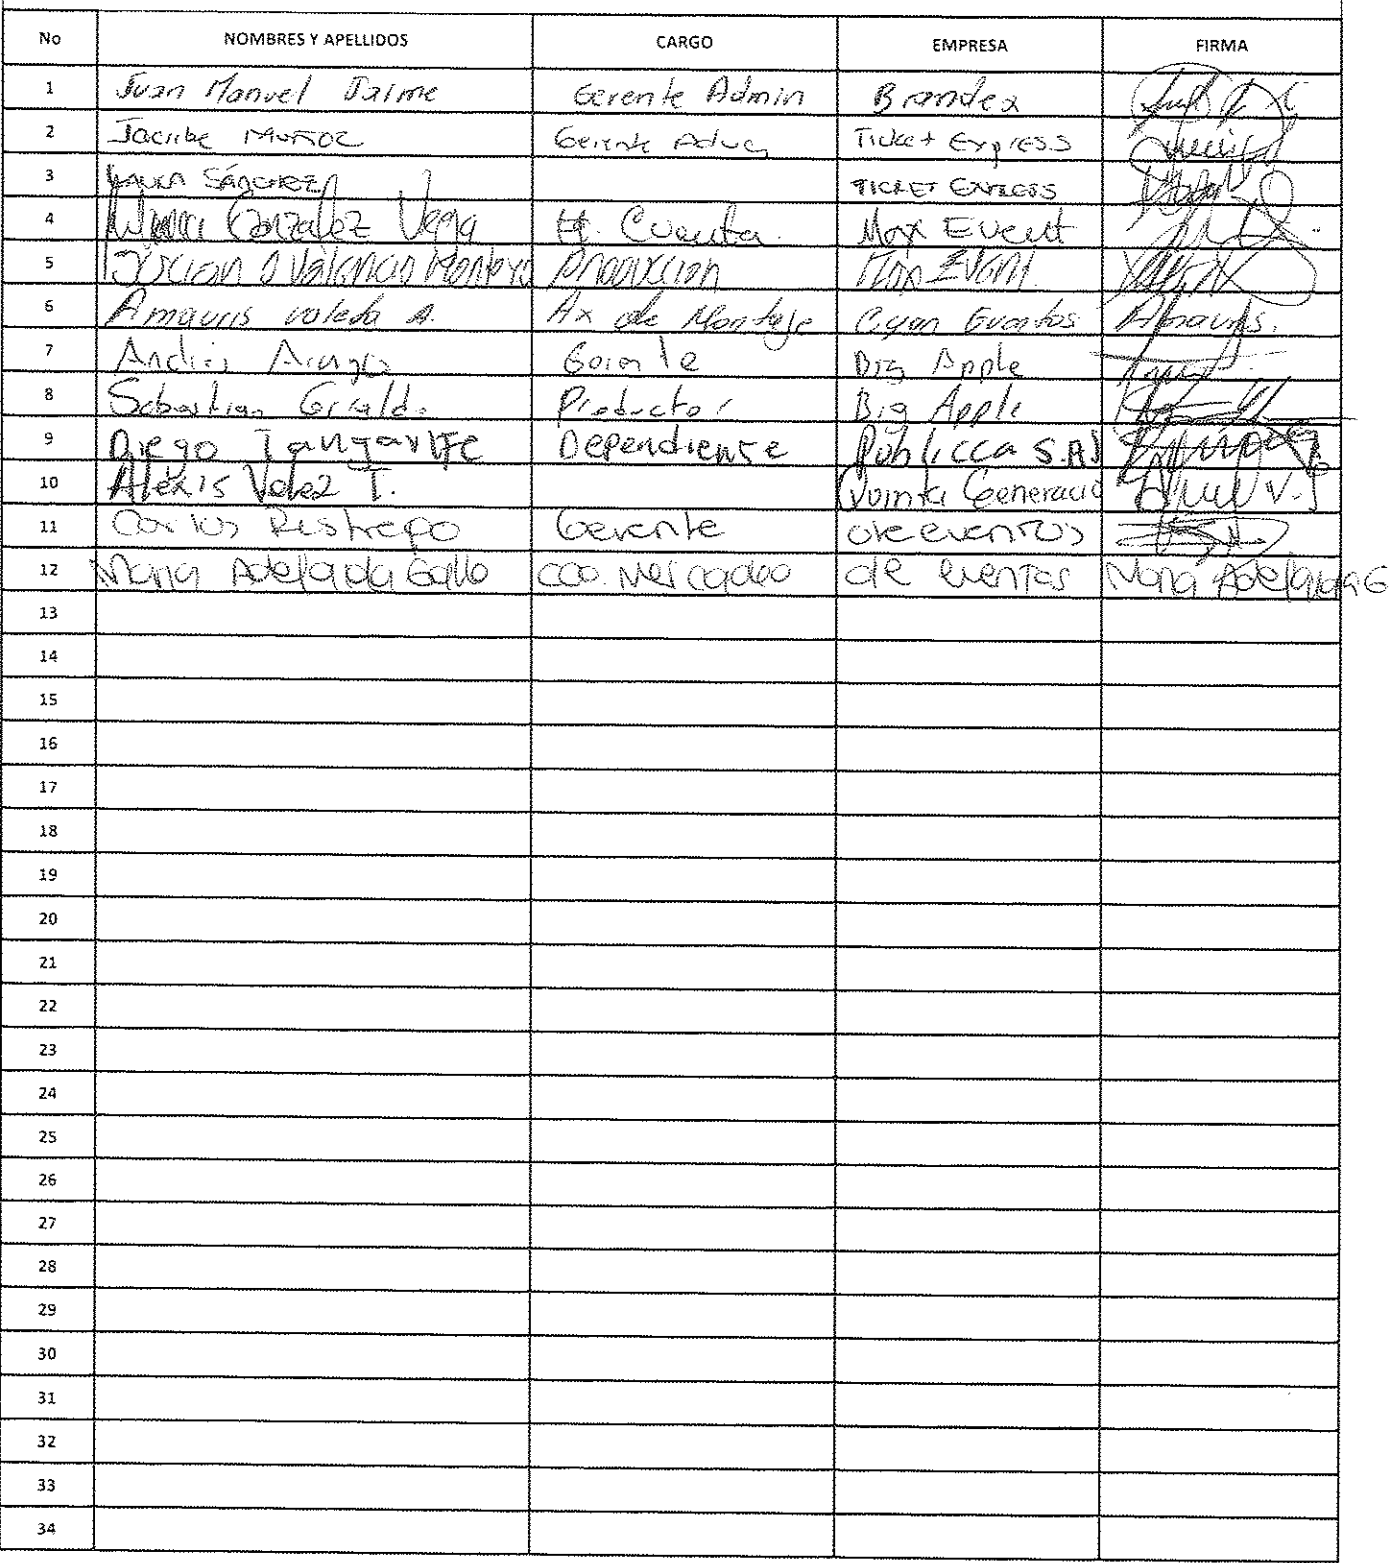 No NOMBRES Y APELLIDOS CARGO EMPRESA FIRMA
1 Juan Manuel Jaime Gerente Admin Brandex
2 Muñoz Gerente Ticket Express
3 Laura Sánchez TICKET EXPRESS
4 González Vega Cuenta. Max Event
5 Valencia Montoya Producción Max Event.
6 Amauris A. Ax de Montaje Cyan Eventos Amauris.
7 Andrés Arango Gerente Big Apple
8 Sebastian Giraldo Productor Big Apple
9 Diego Tangarife Dependiente Publicca S.A.S
10 Alexis Velez T. Quinta Generació
11 Carlos Restrepo Gerente de eventos
12 Maria Adelaida Gallo coo. Mercadeo de eventos Maria Adelaida G
13
14
15
16
17
18
19
20
21
22
23
24
25
26
27
28
29
30
31
32
33
34